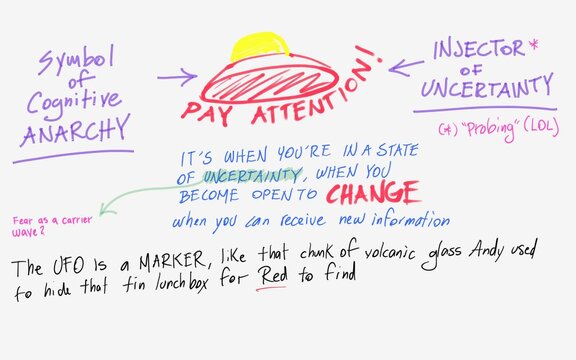 Symbol
of
Cognitive
ANARCHY
PAY ATTENTION!
INJECTOR*
OF
UNCERTAINTY
(*) "Probing" (LOL)
IT'S WHEN YOU'RE IN A STATE
OF UNCERTAINTY, WHEN YOU
BECOME OPEN TO CHANGE
when you can receive new information
Fear as a carrier
wave?
The UFO IS A MARKER, like that chunk of volcanic glass Andy used
to hide that tin lunchbox for Red to find